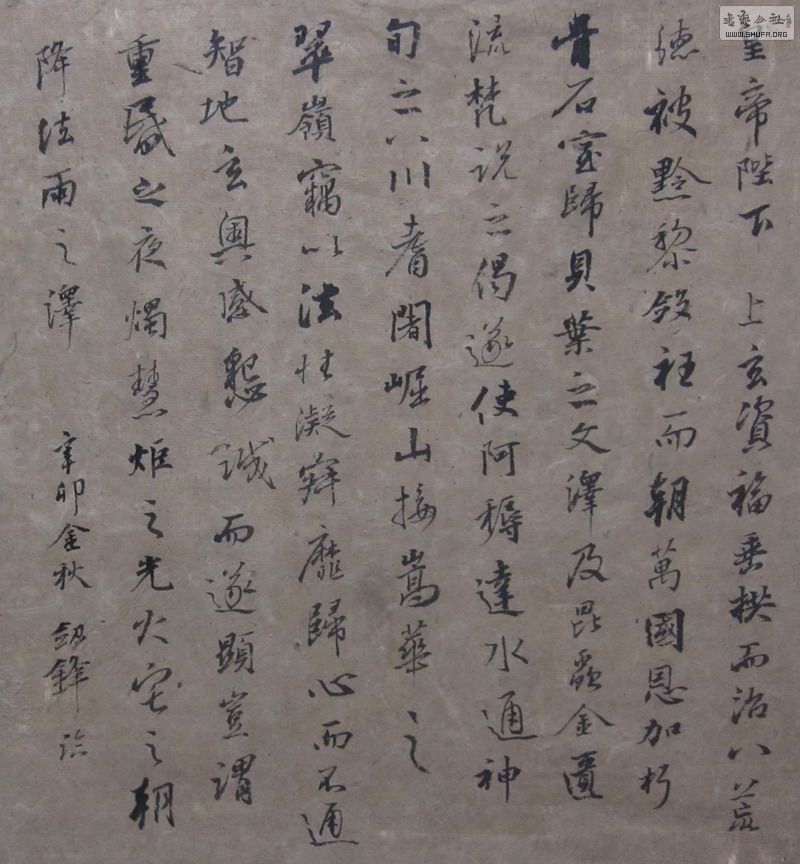 皇帝陛下 上玄資福垂拱而治八荒
德被黔黎斂衽而朝萬國恩加朽
骨石室歸貝葉之文澤及昆蟲金匱
流梵說之偈遂使阿耨達水通神
旬之八川耆闍崛山接嵩華之
翠嶺竊以法性凝寂靡歸心而不通
智地玄奧感懇誠而遂顯豈謂
重昏之夜燭慧炬之光火宅之朝
降法雨之澤
辛卯金秋 劍鋒
書藝公社
WWW.SHUFA.ORG